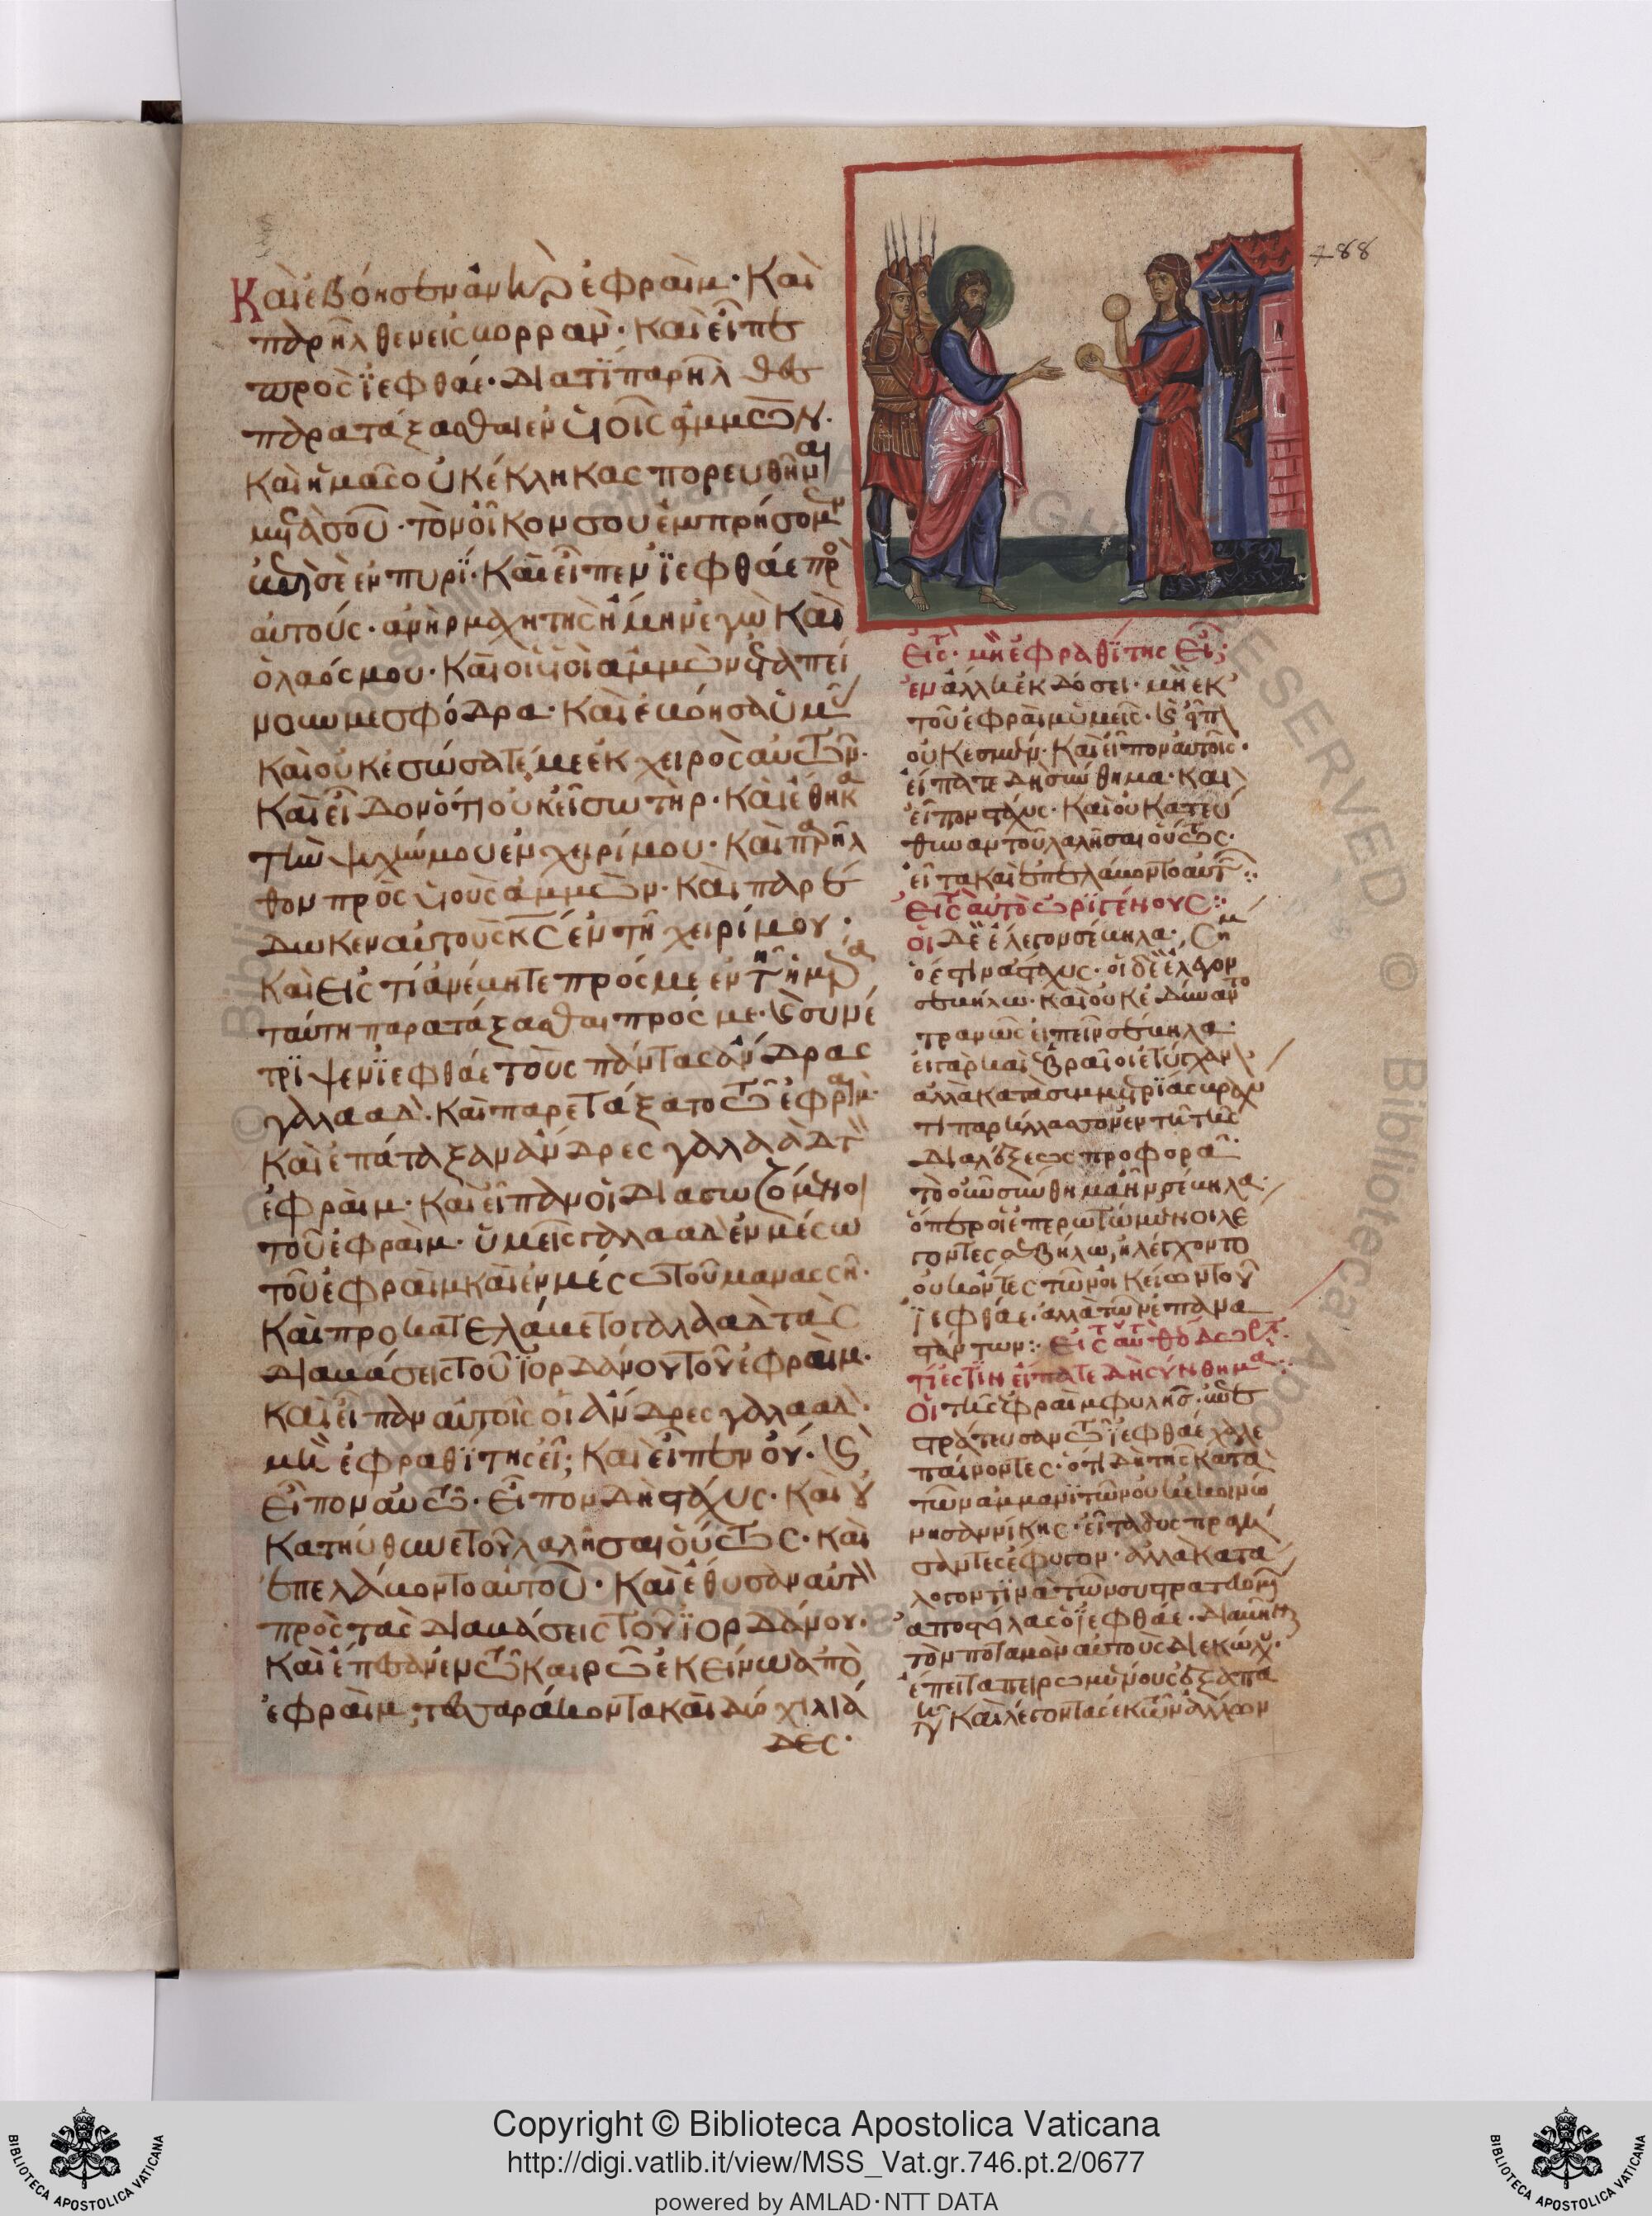 488
Καὶ ἐβόησεν ἀνὴρ ἐφραὶμ· Καὶ
παρῆλθεν εἰς βορρὰν· καὶ εἶπε
πρὸς ϊεφθάε· Διατί παρῆλθες
παρατάξασθαι ἐν υἱοῖς ἀμμὼν·
Καὶ ἡμᾶς οὐ κέκληκας πορευθῆναι
μετὰ σοῦ· τὸν οἶκον σου ἐμπρήσομεν
μετὰ σὲ ἐν πυρΐ· Καὶ εἶπεν ϊεφθάε πρὸς
αὐτούς· ἀνὴρ μαχητὴς ἤμην ἐγὼ Καὶ
ὁ λαός μου· Καὶ οἱ υἱοὶ ἀμμὼν ἐταπεί
νουν με σφόδρα· Καὶ ἐβόησα ὑμῖν
Καὶ οὐκ ἐσώσατέ με ἐκ χειρὸς αὐτῶν·
Καὶ εἶδον ὅτι οὐκ εἶ σωτὴρ· Καὶ ἔθηκα
τὴν ψυχήν μου ἐν χειρί μου· Καὶ παρῆλ
θον πρὸς υἱοὺς ἀμμὼν· Καὶ παρέ
δωκεν αὐτοὺς κ̅ς̅ ἐν τῇ χειρί μου·
Καὶ εἰς τί ἀνέβητε πρός με ἐν τῇ ἡμέρα
ταύτη παρατάξασθαι πρός με· καὶ συνέ
τρϊψεν ϊεφθάε τοὺς πάντας ἄνδρας
γαλαὰδ· Καὶ παρετάξατο τῷ ἐφραὶμ·
Καὶ ἐπάταξαν ἄνδρες γαλαὰδ τὸν
ἐφραὶμ· Καὶ εἶπαν οἱ διασωζόμενοι
τοῦ ἐφραὶμ· ὑμεῖς γαλαὰδ ἐν μέσω
τοῦ ἐφραὶμ καὶ ἐν μέσω τοῦ μανασσῆ·
Καὶ προκατελάβετο γαλαὰδ τὰς
Διαβάσεις τοῦ ϊορδάνου τοῦ ἐφραὶμ·
Καὶ εἶπαν αὐτοῖς οἱ ἄνδρες γαλαὰδ·
μὴ ἐφραθΐτης εἶ; Καὶ εἶπεν οὔ· καὶ
εἶπον αὐτῷ· εἶπον δὴ στάχυς· Καὶ οὐ
κατηύθυνε τοῦ λαλῆσαι οὕτως· Καὶ
ἐπελάβοντο αὐτοῦ· Καὶ ἔθυσαν αὐτὸν
πρὸς τὰς διαβάσεις τοῦ ϊορδάνου·
Καὶ ἔπεσαν ἐν τῷ καιρῷ ἐκείνω ἀπὸ
ἐφραὶμ, τεσσαράκοντα καὶ δύο χιλιά
δες·
εἰς τὸ· μὴ ἐφραθΐτης εἶ;
ἐν ἄλλη ἐκδόσει· μὴ ἐκ
τοῦ ἐφραὶμ ὑμεῖς· καὶ εἶπαν
οὐκ ἐσμέν· Καὶ εἶπον αὐτοῖς·
εἴπατε δὴ σύνθημα· Καὶ
εἶπον στάχυς· Καὶ οὐ κατεύ
θυναν τοῦ λαλῆσαι οὕτως·
εἶτα καὶ ἐπελάβοντο αὐτῶν:·
εἰς τὸ αὐτὸ ὠριγένους:·
οἱ δὲ ἔλεγον σέμηλα·
ὅ ἐστιν στάχυς· οἱ δὲ ἔλεγον
καὶ οὐκ ἐδύναντο
τρανῶς εἰπεῖν
ἀλλὰ κατὰ
τῆς
διαλέξεως προφορᾶ·
τὸ οὖν σύνθημα ἦν
ὅπερ οἱ ἐπερωτώμενοι λέ
γοντες ἠλέγχοντο
οὐκ ὄντες τῶν οἰκείων τοῦ
ϊεφθάε· ἀλλὰ τῶν ἐπανα
στάντων:· εἰς τὸ αὐτὸ θεοδωρίτου·
τί ἐστϊν εἴπατε δὴ σύνθημα:·
Οἱ τῆς ἐφραὶμ φυλῆς·
στράτευσαν τῷ ϊεφθάε χαλε
παίνοντες· ὅτι δὴ τῆς κατὰ
τῶν ἀμμανϊτῶν οὐκ ἐκοινώ
νησαν νίκης· εἶτα
σαντες ἔφυγον· ἀλλὰ κατα
λόγον τϊνὰ τῶν συστρατευομένων
ἀποστείλας ὁ ϊεφθάε· διαβῆναι
τὸν ποταμὸν αὐτοὺς διεκώλυσεν·
ἔπειτα πειρωμένους ἐξαπα
τᾶν Καὶ λέγοντας ἐκ τῶν ἄλλων
Copyright © Biblioteca Apostolica Vaticana
http://digi.vatlib.it/view/MSS_Vat.gr.746.pt.2/0677
powered by AMLAD·NTT DATA
BIBLIOTECA APOSTOLICA VATICANA
BIBLIOTECA APOSTOLICA VATICANA